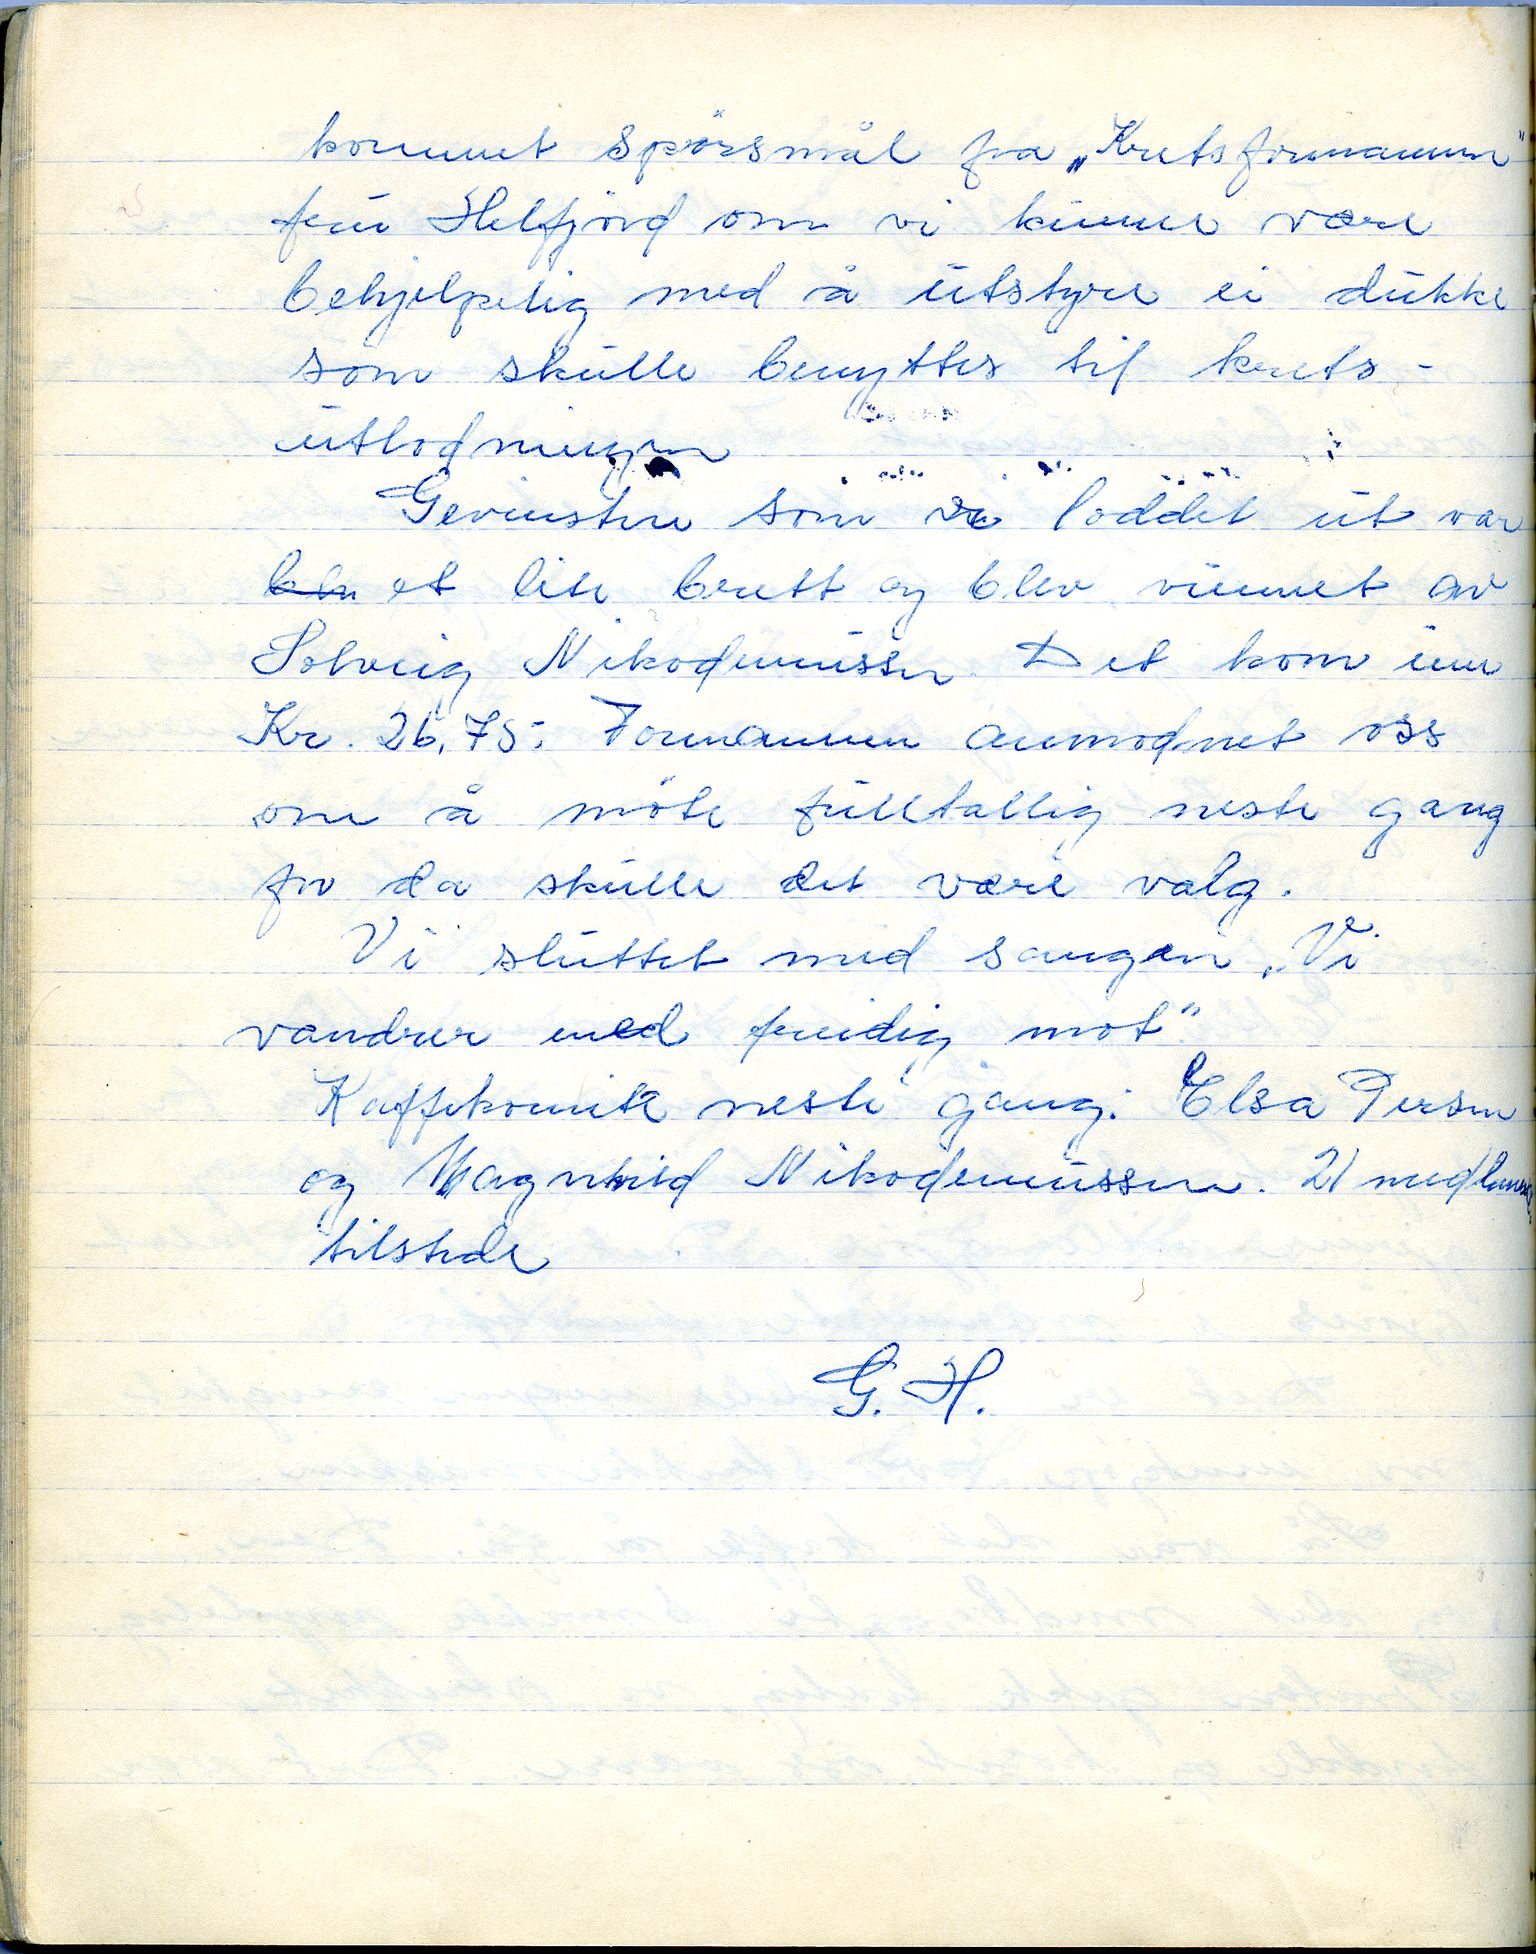 kommet spörsmål fra „Kretsformannen"
fru Helfjörd om vi kunne være
behjelpelig med å utstyre ei dukke
som skulle benyttes til krets-
utlodningen
Gevinsten som vi loddet ut var
et lite brett og blev vunnet av
Solveig Nikodemussen. Det kom inn
Kr. 26,75. Formannen anmodnet oss
om å möte fulltallig neste gang
for da skulle det være valg.
Vi sluttet med sangen „Vi
vandrer med freidig mot"
Kaffekomite neste gang: Elsa Persen
og Magnhild Nikodemussen. 21 medlemmer
tilstede
G. H.